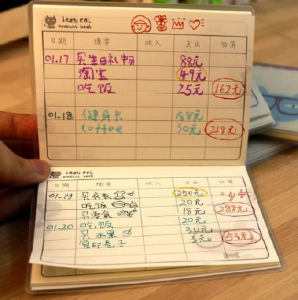 日期 摘要 收入 支出 结算
01.17 买生日礼物 88元
淘宝 49元
吃饭 25元 162元
01.18 健身卡 188元
coffee 30元 218元
日期 摘要 收入 支出 结算
01.19 买衣服 250元
吃饭 20元
买零食 18元 288元
01.20 吃饭 20元
买水果 30元
3元 53元